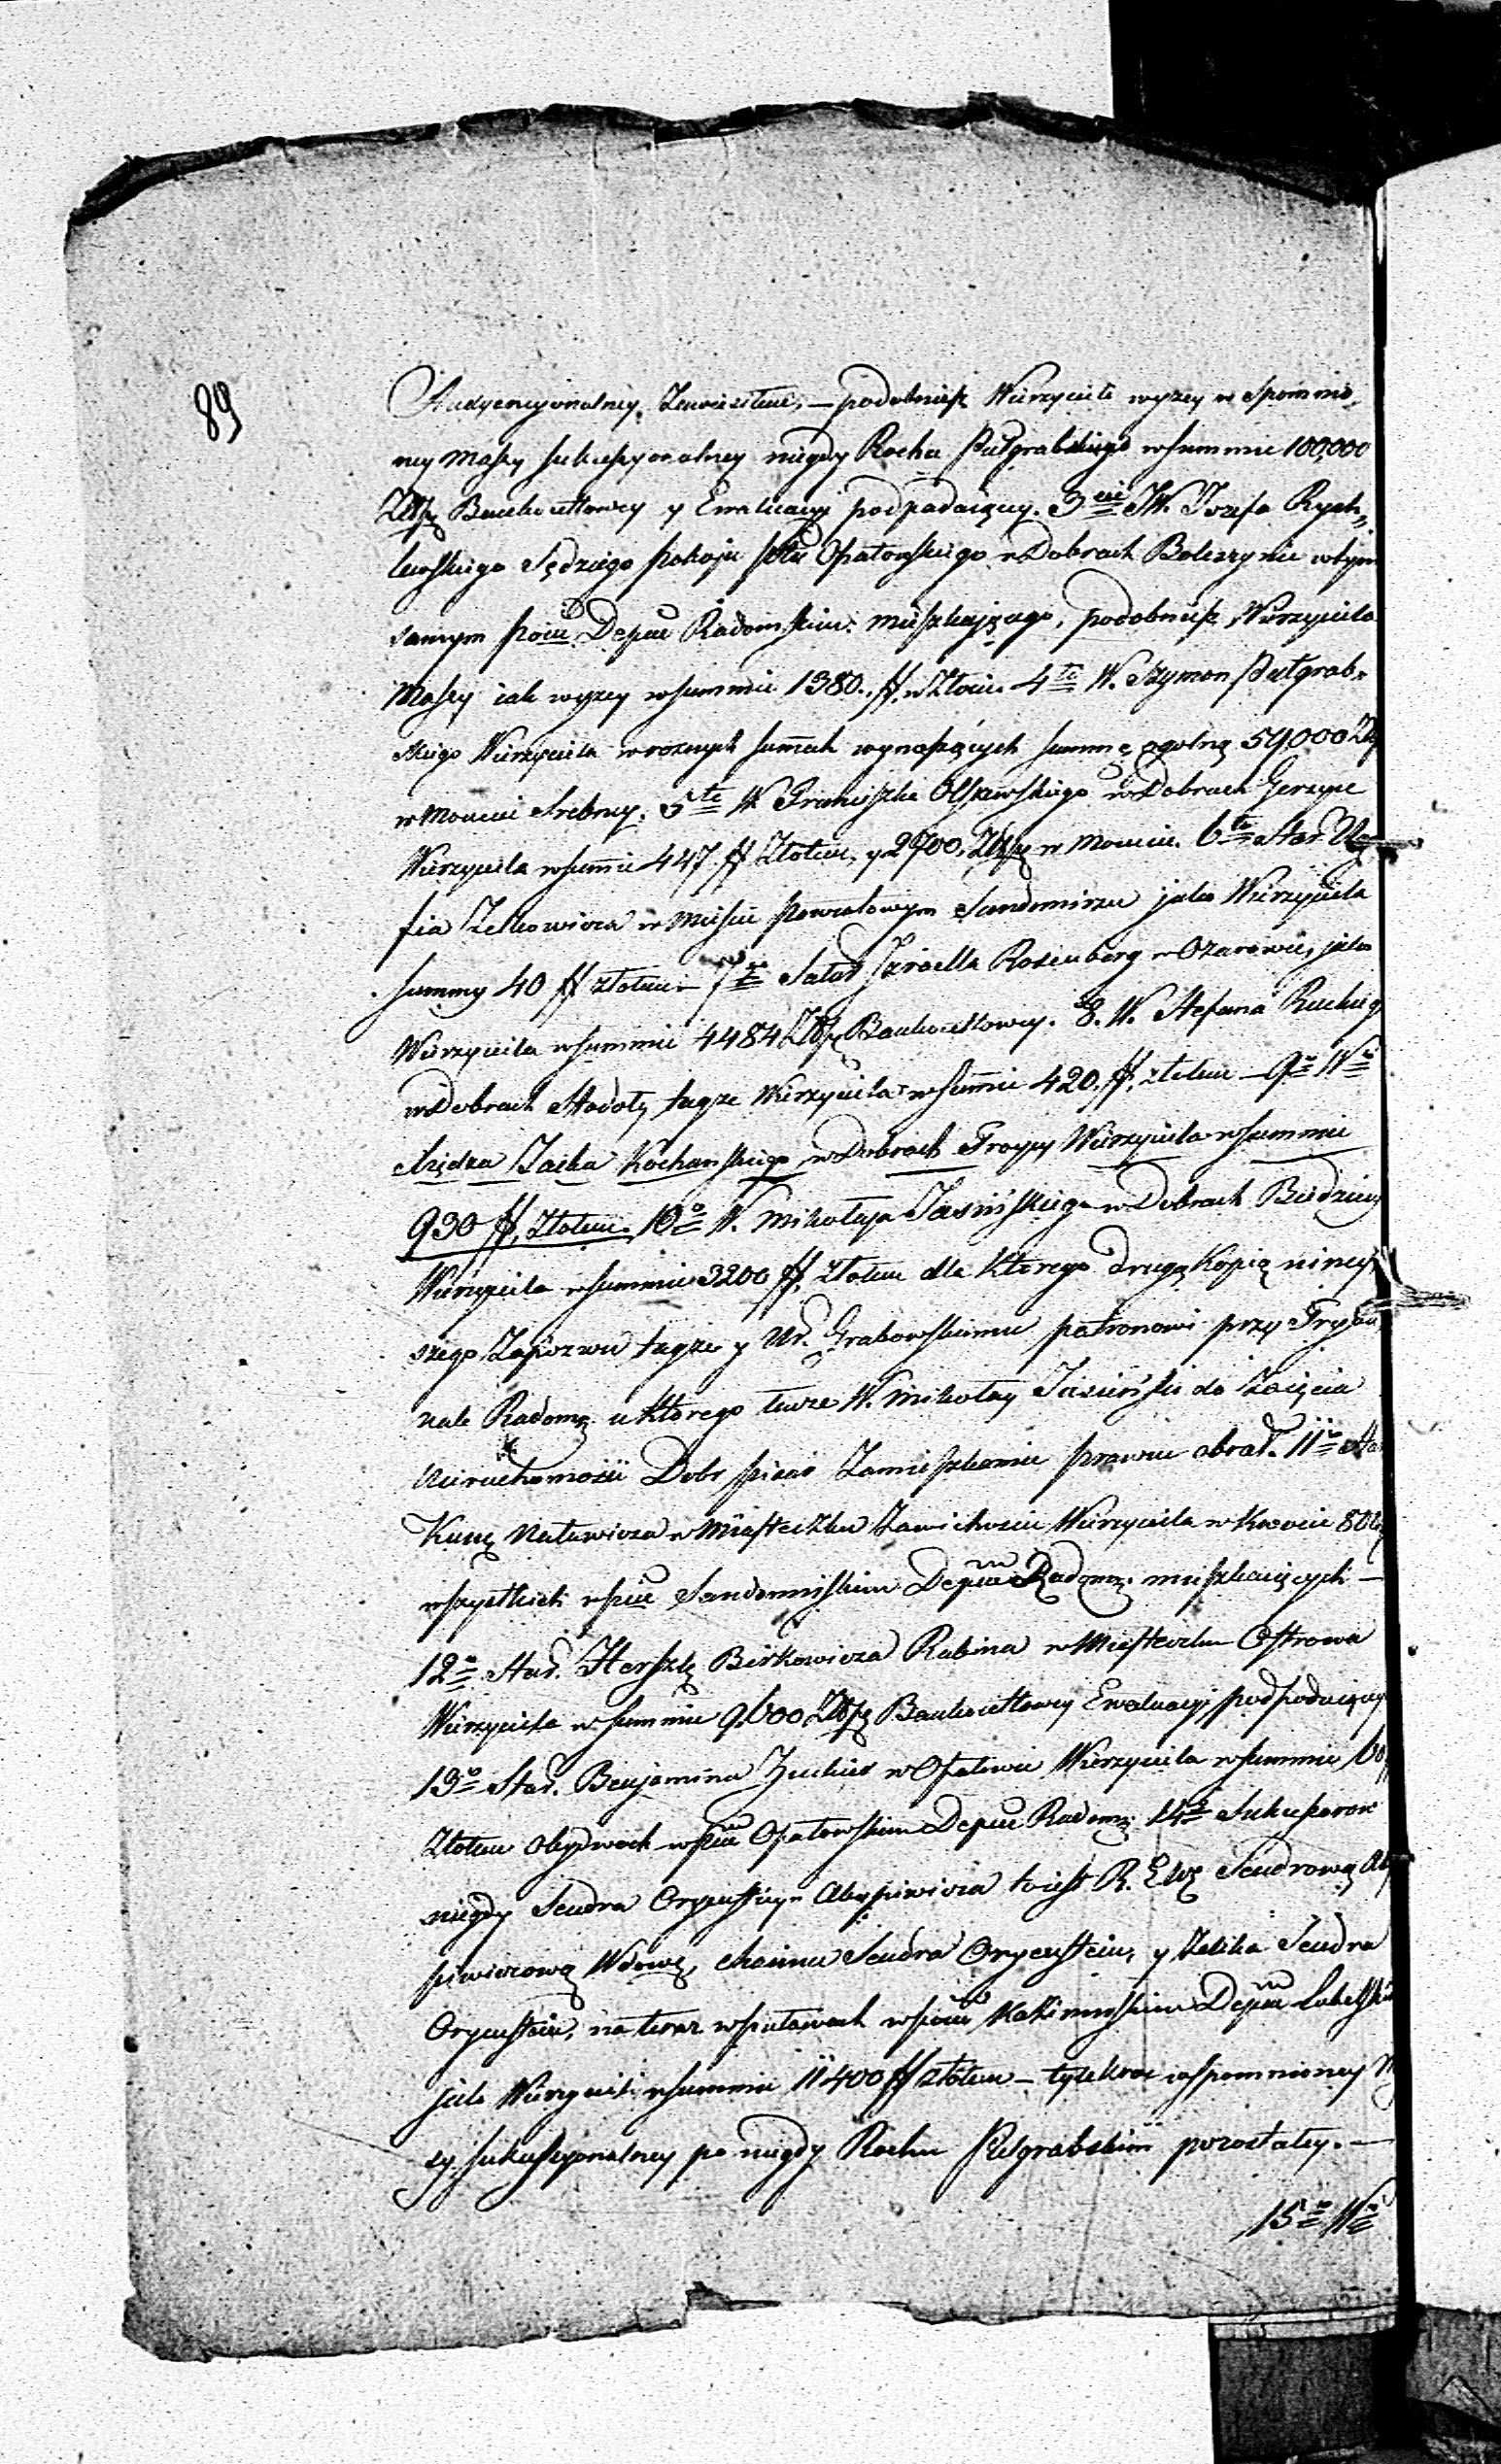 89
Audyencyonalney Zawiesiłem, — podobnież Wierzyciela wyżey w spomnio„
ney Massy sukcessyonalney niegdy Rocha Pułgrabskiego w summie 100,000
Złłp Bankocetlowey y Ewaluacyi podpadaiącey. 3cie JW. Jozefa Rych„
lewskiego Sędziego Pokoju Pttu Opatowskiego w Dobrach Boleszynie w tym
samym Powie Depcie Radomskim mieszkającego, podobnież Wierzyciela
Massy iak wyżey w summie 1380. ff. w Złocie. 4te W. Szymon Pułgrab„
skiego Wierzyciela w rożnych summach wynoszących summę ogolną 59,000 Złł
w Monecie Srebrney. 5te W. Franciszka Olszewskiego w Dobrach Gerzyce
Wierzyciela w summie 447. ff Złotem, y 2700. Złłp w Monecie. 6te Star.
fia Zelkowicza w Mieście Powiatowym Sandomirzu jako Wierzyciela
summy 40 ff złotem — 7me Star. Izraella Rosenberg w Ożarowie, jako
Wierzyciela w summie 4484 Złłp Bankocetlowey. 8. W. Stefana Ruckieg
w Dobrach Stodoły także Wierzyciela w summie 420. ff. złotem — 9o W
Xiędza Jacka Kochanskiego w Dobrach Troycy Wierzyciela w summie
930 ff. Złotem. 10o W. Mikołaja Jasińskiego w Dobrach Biedrzyc
Wierzyciela w summie 3200 ff. Złotem dla ktorego drugą kopią niniey„
szego Zapozwu także y Ur. Grabowskiemu patronowi przy Trybu„
nale Radoms. u ktorego tenże W. Mikołay Jasiński do Zaięcia
Nieruchomości Dobr pisać Zamieszkanie prawne obrał. 11o Sta
Kunę Natowicza w Miasteczku Zawichoscie Wierzyciela w kwocie 80
wszystkich w Pcie Sandomirskim Depcie Radoms. mieszkaiących —
12o Star. Herszlę Berkowicza Rabina w Miasteczku Ostrowa
Wierzyciela w summie 9600 Złłp Bankocetlowey Ewaluacyi podpadaiącey
13o Star. Benjamina Zucker w Opatowie Wierzyciela w summie 60
Złotem Obydwoch w Pcie Opatowskim Depcie Radoms. 14o Sukcessorow
niegdy Sendra Orgenstein Abusiewicza to iest R. Elżę Sendrową Ab
siewiczową Wdowę, Chaima Sendra Orgenstein, y Zelika Sendra
Orgenstein, na teraz w Puławach w Pcie Kazimirskim Depcie Lubelskim
jako Wierzycieli w summie 11400 ff złotem — tylekroć wspomnioney M
sy sukcessyonalney po niegdy Rochu Pułgrabskim pozostałey. —
15o W